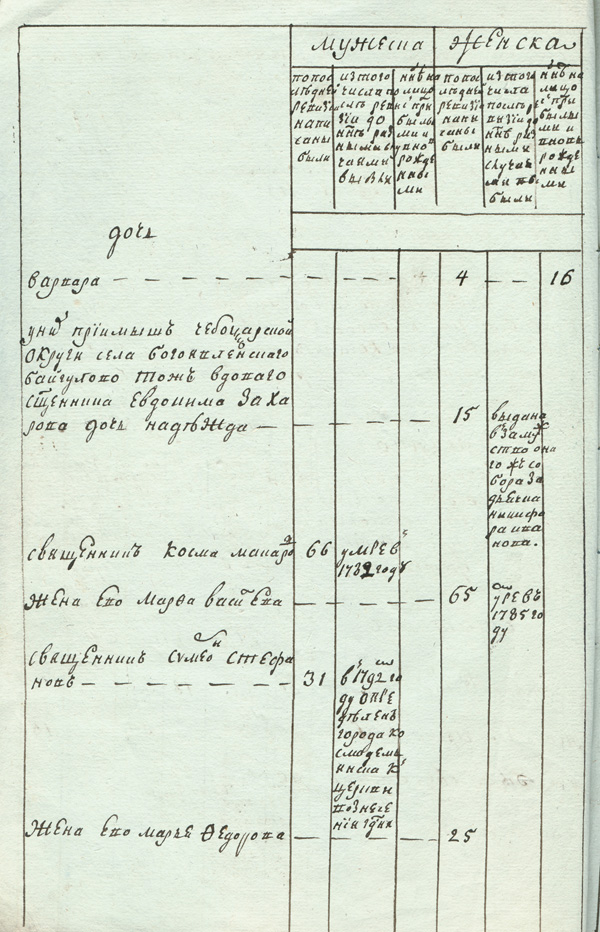 мужеска
женска
попос
лѣдне
ревизи
напи
саны
были
изтого
числа по
слѣ реви
зіи до
ннѣ раз
ными слу
чаями
выбыли
ннѣ на
лицо
і при
былы
ми и
вновь
рожде
нны
ми
попос
лѣдне
ревизіи
напи
саны
были
изтого
числа
послѣ ре
визіи до
ннѣ раз
ными
случая
ми вы
были
ннѣ на
лицо
і при
былы
ми и
вновь
рожде
нны
ми
дочь
варвара — — — — — — 4 — — 16
унихъ пріимышъ чебоцарской
округи села богоявленскаго
байгулово тожъ вдоваго
сщенника Евдокима Заха
рова дочь надѣжда — — — — 15
выдана
взаму
ство она
го жъ со
бора за
дьячка
никифо
ра ива
нова.
священникъ Косма макаро 66
умре в
1782 годѣ
жена Ево Марѳа васильева — — — — 65
умре въ
1785 го
ду
священникъ Сумеонъ Стефа
новъ — — — — 31
в 1792 го
ду опре
дѣленъ
города ко
смодемь
янска къ
церкви
вознесе
нія гдня
жена Ево марье Ѳедорова — — — — 25